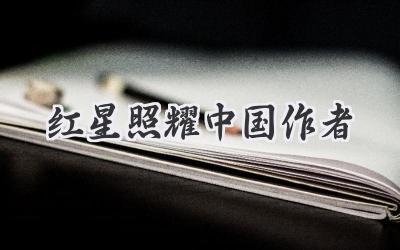 红星照耀中国作者